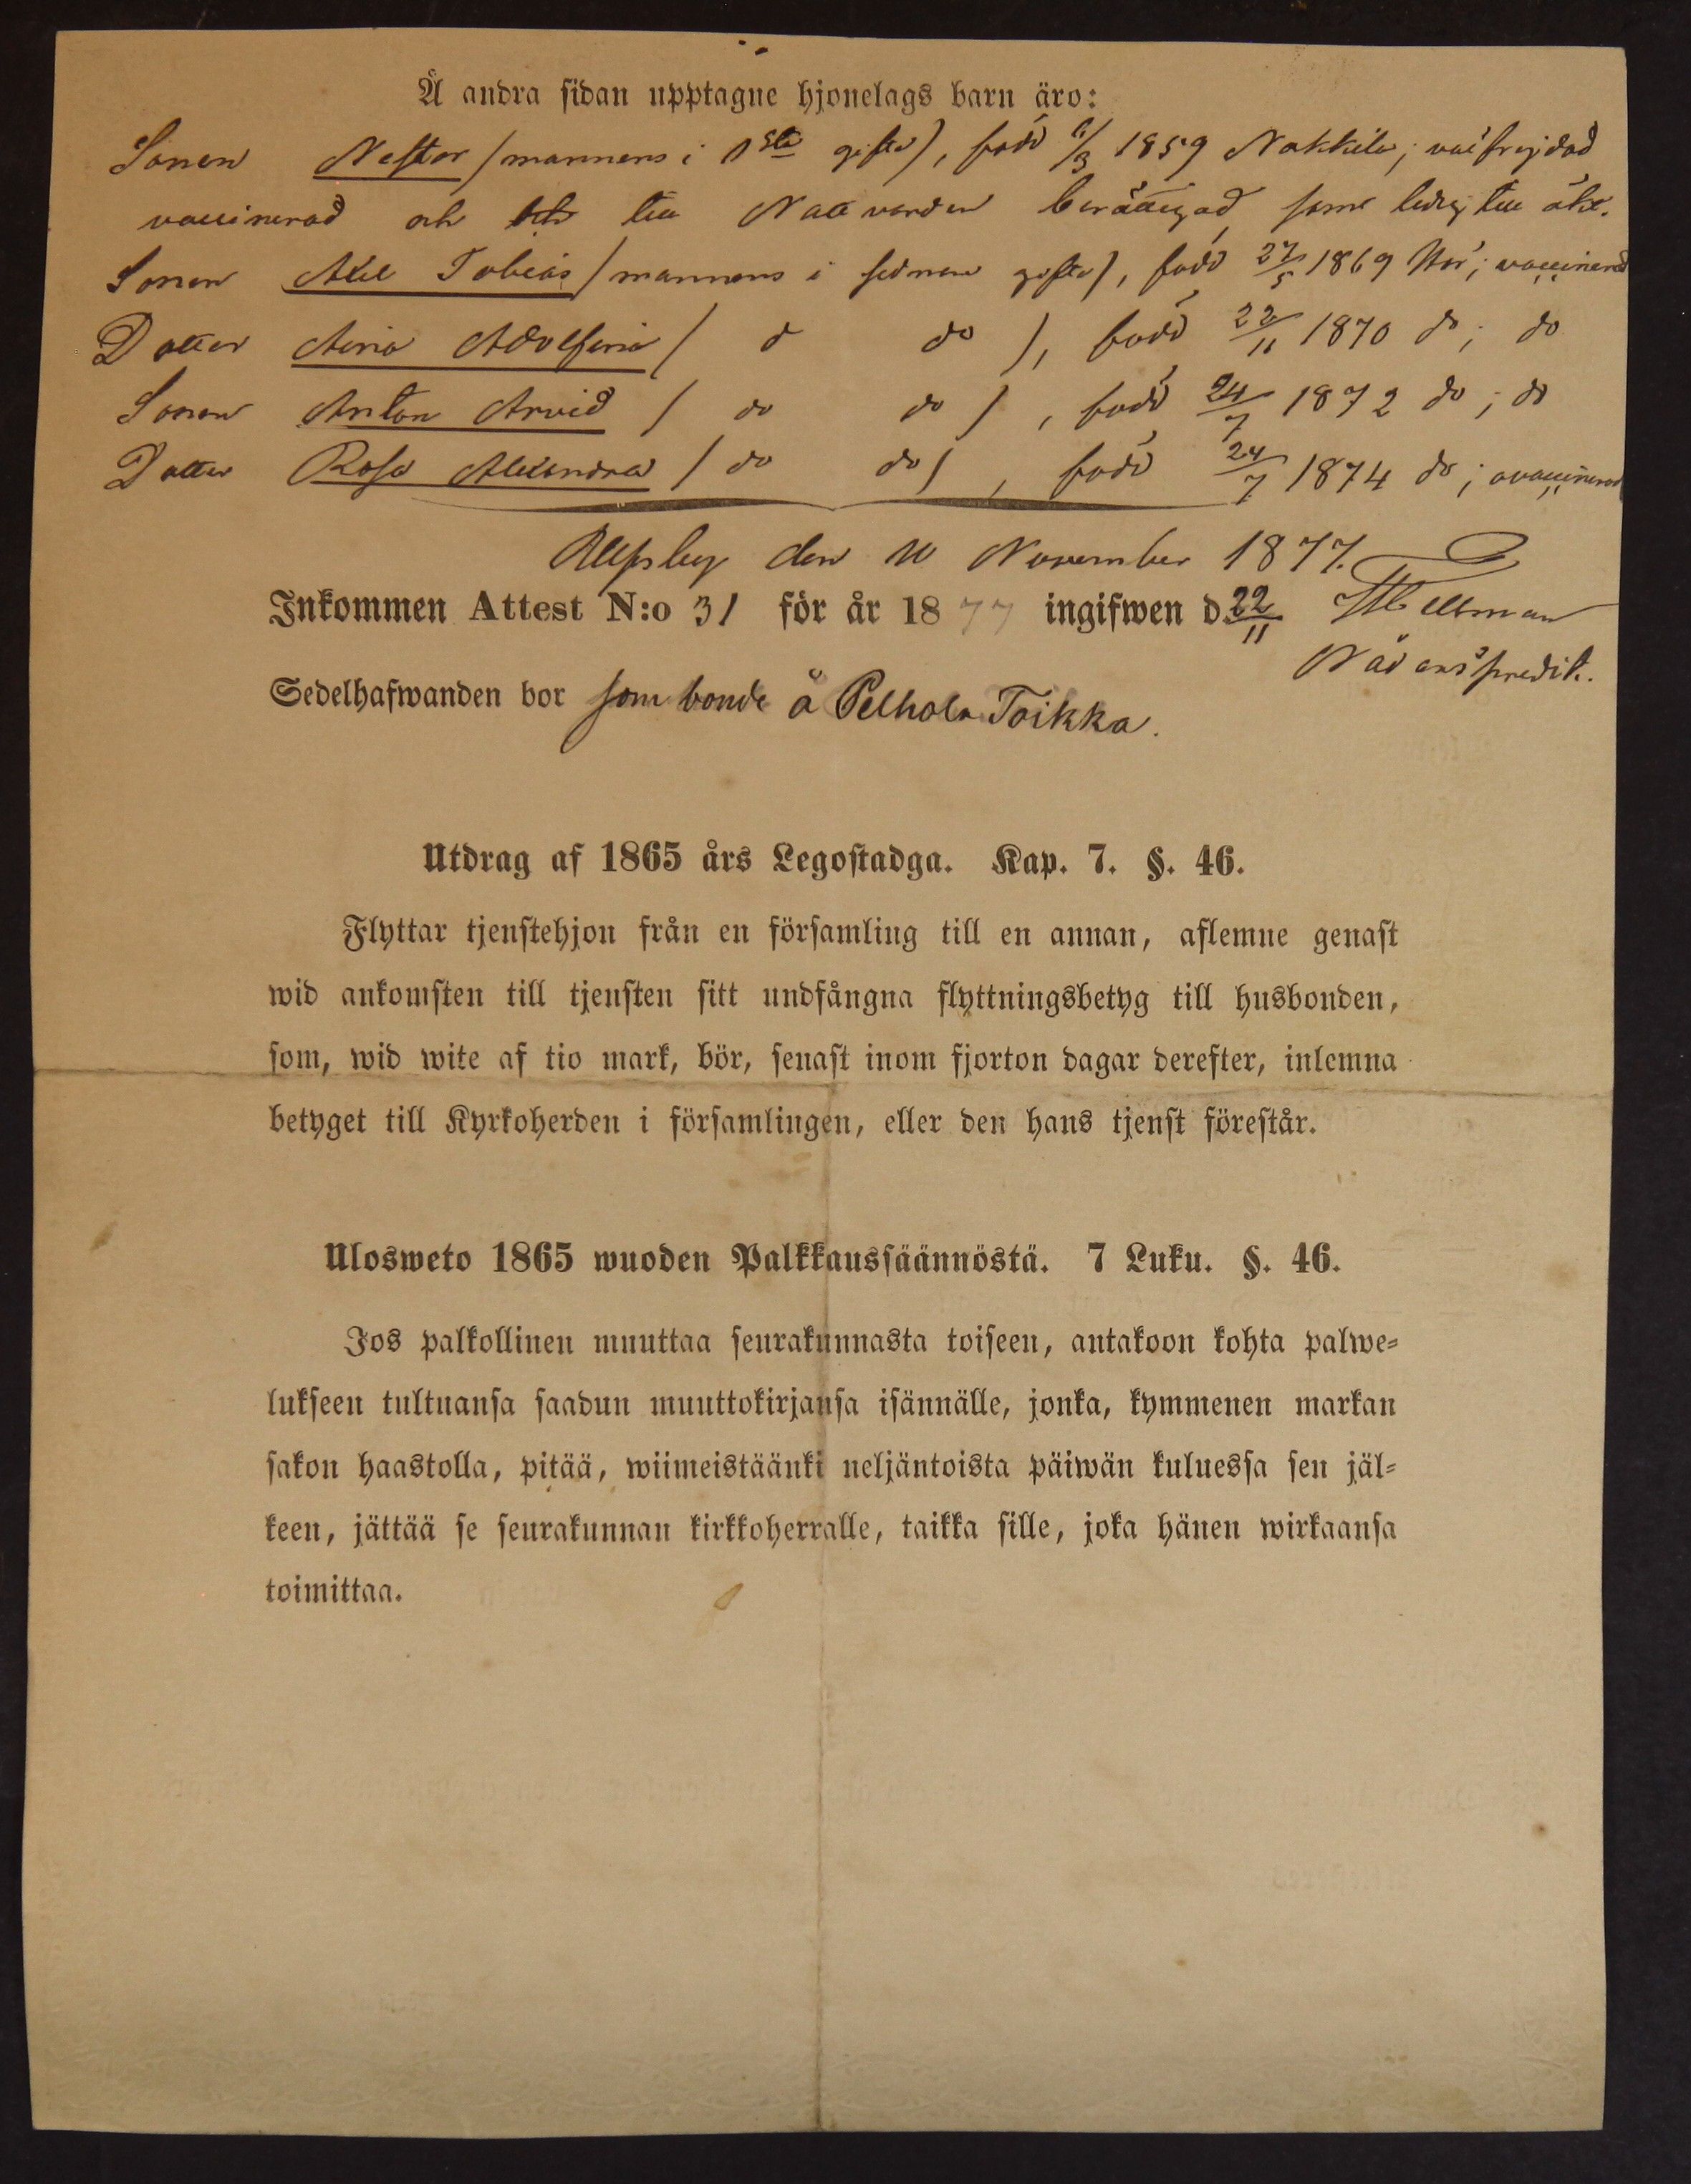 Å andra sidan upptagne hjonelags barn äro:
Sonen Nestor (mannens i 1sta gifte), född 6/3 1859 Nakkila; välfrejdad
vaccinerad och till Nattvarden berättigad samt ledig till äkt.
Sonen Axel Tobias (mannens i sednare gifte), född 27/5 1869 här; vaccinerad
Dotter Aina Adolfina ( d do ), född 22/11 1870 do; do
Sonen Anton Arvid ( do do ), född 24/7 1872 do; do
Dotter Rosa Alexandra ( do do ), född 24/7 1874 do; ovaccinerad
den 10 November 1877.
Inkommen Attest N:o 31 för år 1877 ingifwen d. 22/11 Hellman
Nådårspredik.
Sedelhafwanden bor som bonde å Pelhola Toikka.
Utdrag af 1865 års Legostadga. Kap. 7. §. 46.
Flyttar tjenstehjon från en församling till en annan, aflemne genast
wid ankomsten till tjensten sitt undfångna flyttningsbetyg till husbonden,
som, wid wite af tio mark, bör, senast inom fjorton dagar derefter, inlemna
betyget till Kyrkoherden i församlingen, eller den hans tjenst förestår.
Ulosweto 1865 wuoden Palkkaussäännöstä. 7 Luku. §. 46.
Jos palkollinen muuttaa seurakunnasta toiseen, antakoon kohta palwe=
lukseen tultuansa saadun muuttokirjansa isännälle, jonka, kymmenen markan
sakon haastolla, pitää, wiimeistäänki neljäntoista päiwän kuluessa sen jäl=
keen, jättää se seurakunnan kirkkoherralle, taikka sille, joka hänen wirkaansa
toimittaa.